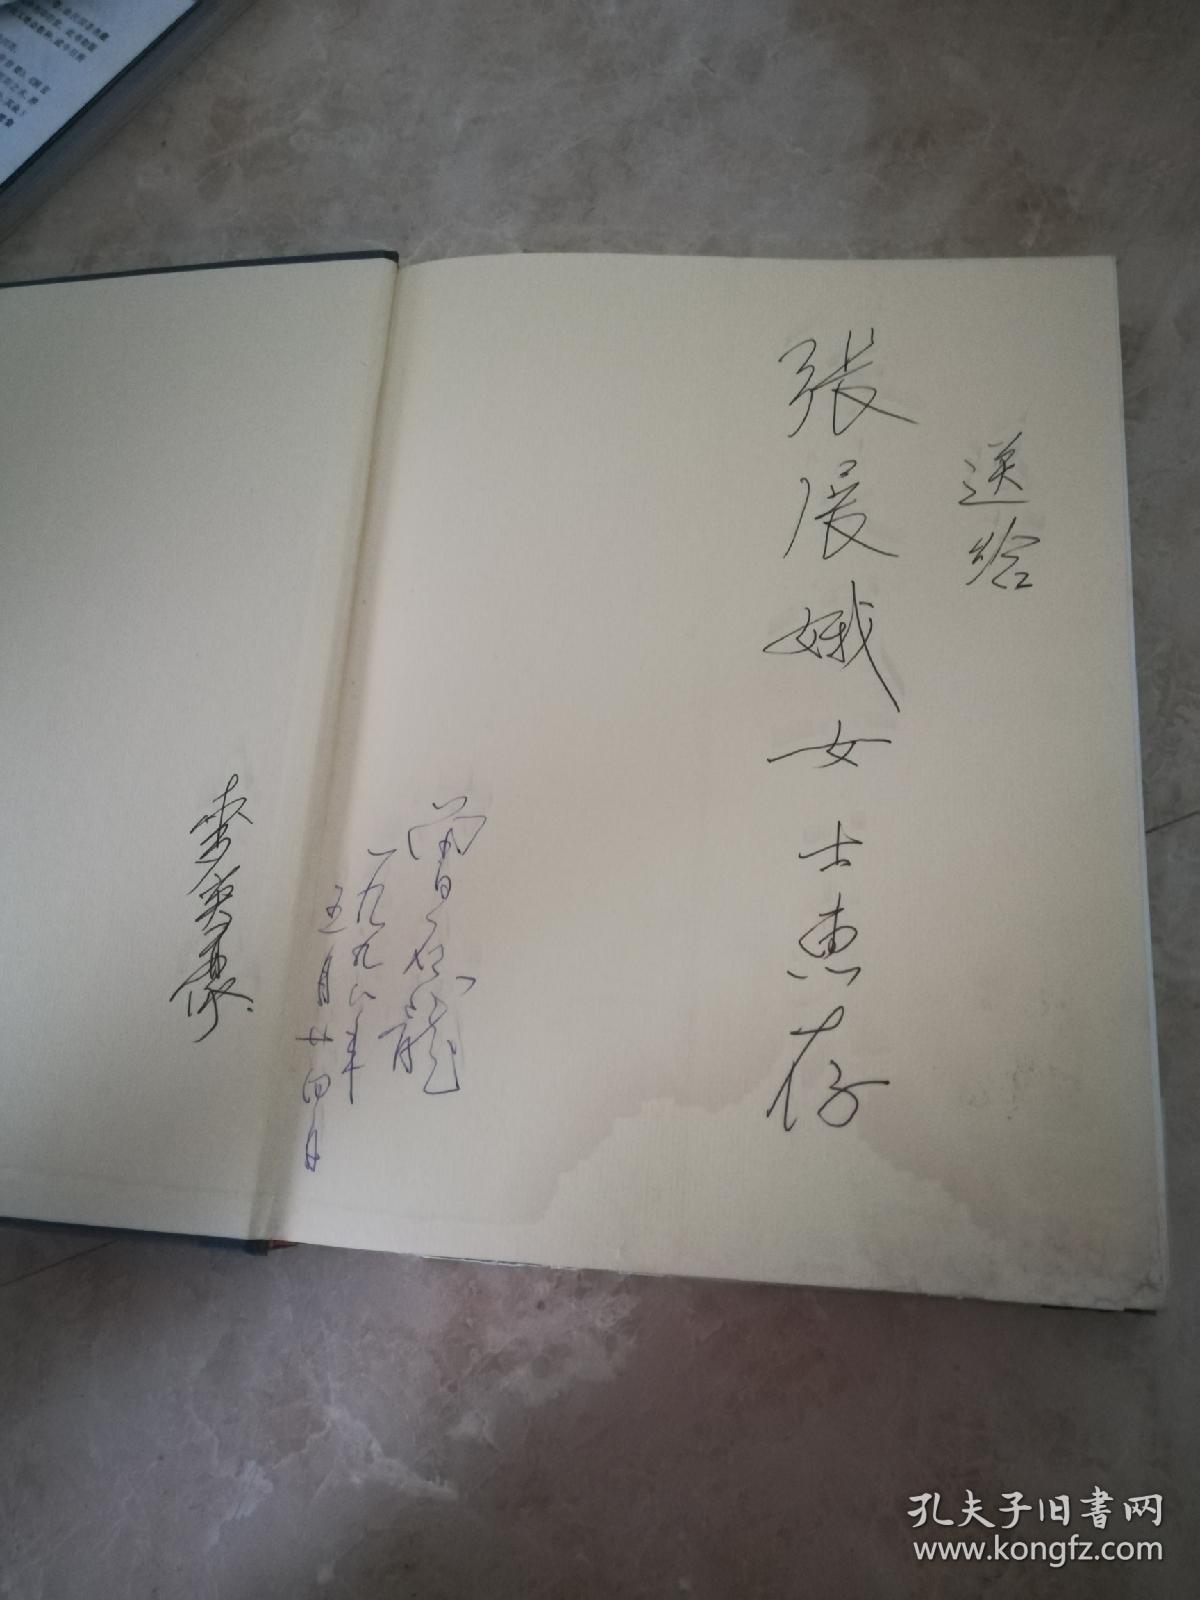 送给
张晨娥女士惠存
曾石龍
一九九八年
五月廿四日
李英豪
孔夫子旧書网
www.kongfz.com